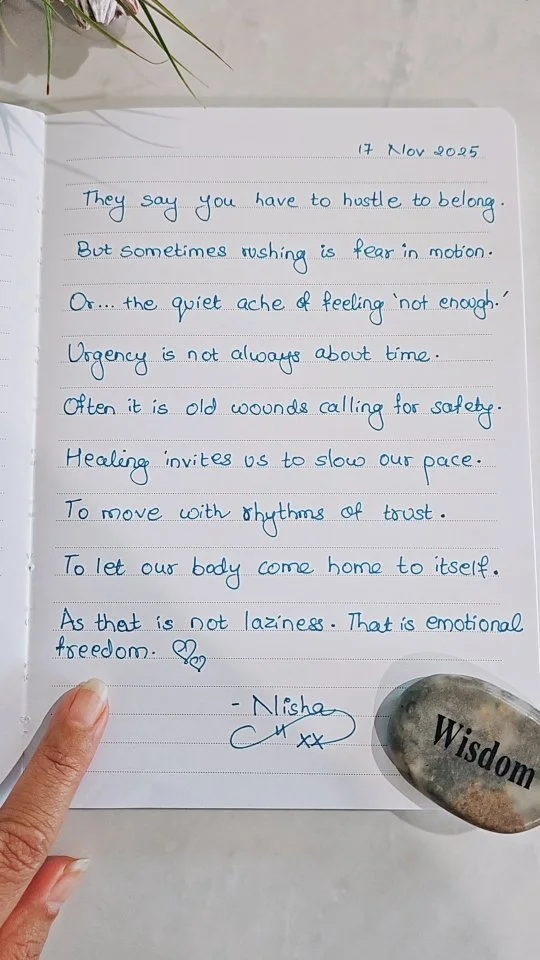 17 Nov 2025
They say you have to hustle to belong.
But sometimes rushing is fear in motion.
Or... the quiet ache of feeling 'not enough.'
Urgency is not always about time.
Often it is old wounds calling for safety.
Healing invites us to slow our pace.
To move with rhythms of trust.
To let our body come home to itself.
As that is not laziness. That is emotional
freedom.
- Nisha
xx
Wisdom